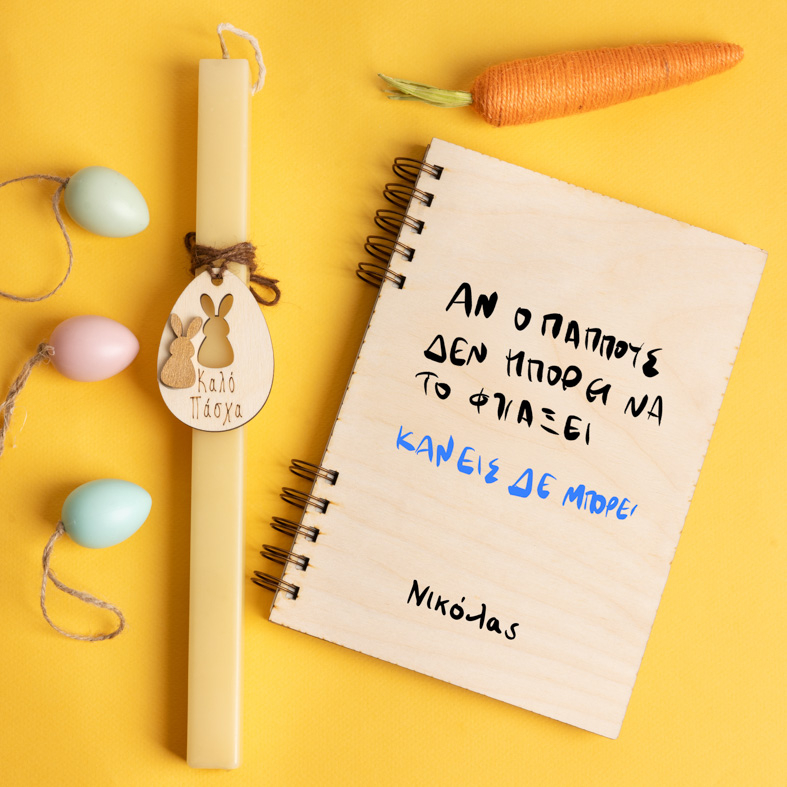 Καλό
Πάσχα
ΑΝ Ο ΠΑΠΠΟΥΣ
ΔΕΝ ΜΠΟΡΕΙ ΝΑ
ΤΟ ΦΤΙΑΞΕΙ
ΚΑΝΕΙΣ ΔΕ ΜΠΟΡΕΙ
Νικόλας